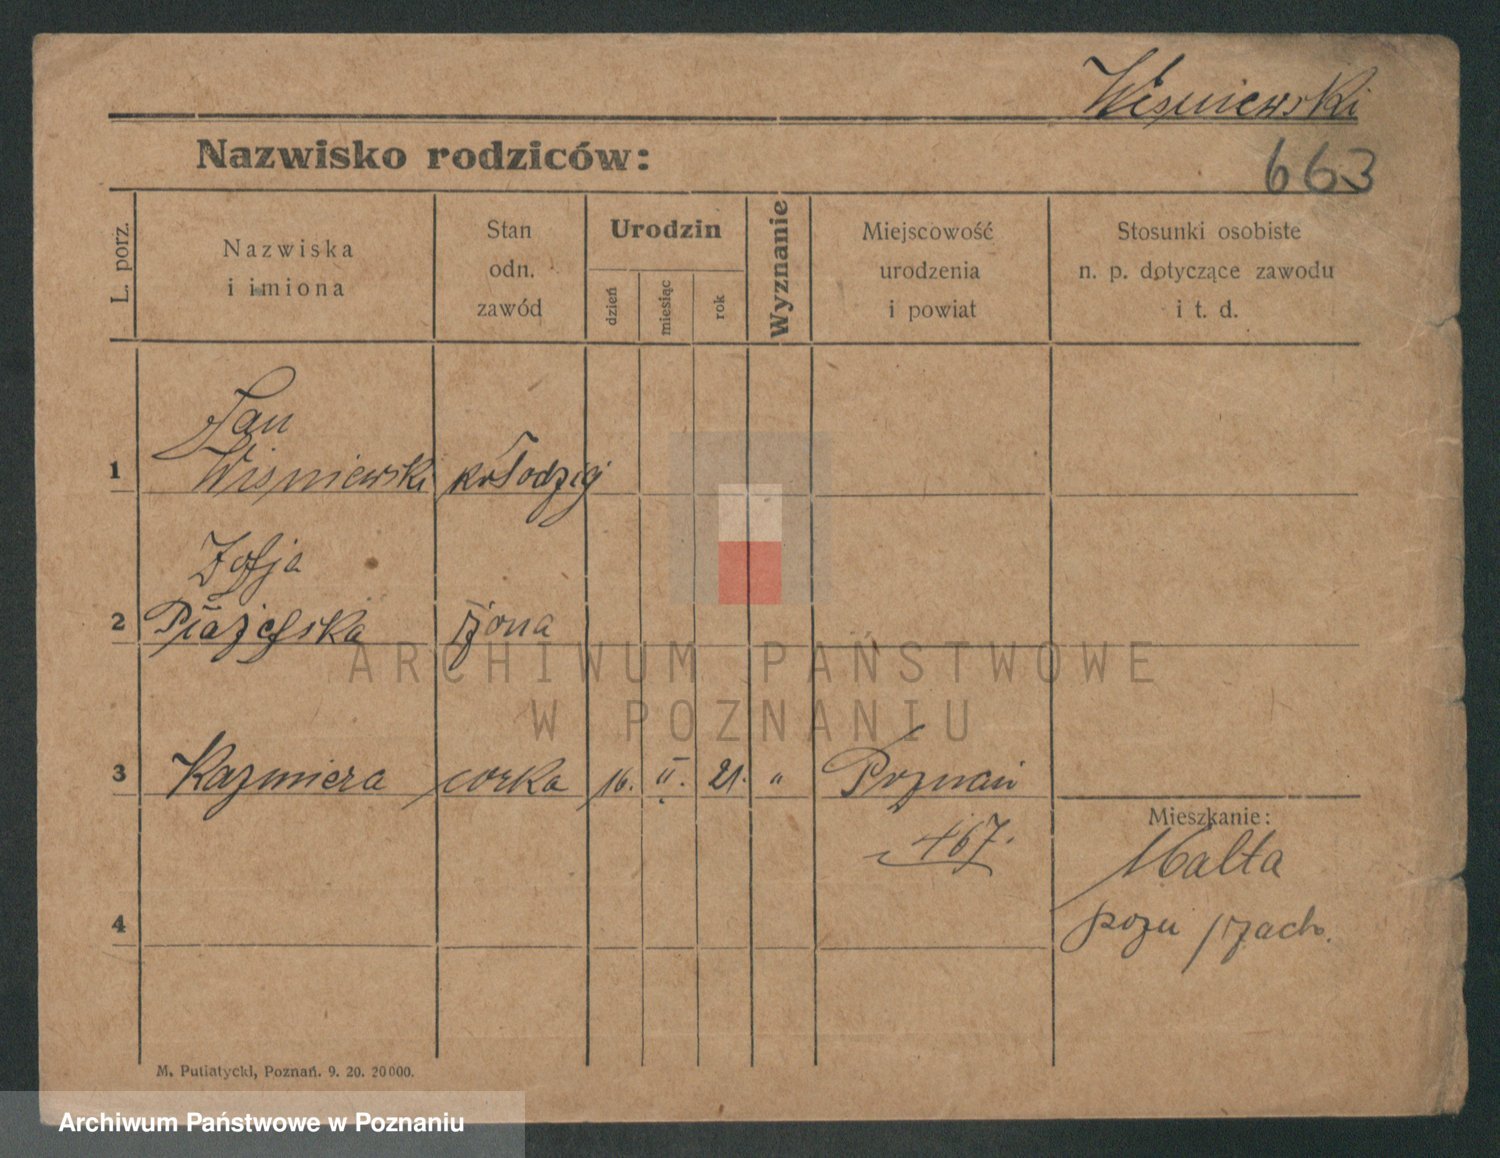 Wiśniewski
Nazwisko rodziców:
663
L. porz.
Nazwiska
i imiona
Stan
odn.
zawód
Urodzin
dzień
miesiąc
rok
Wyznanie
Miejscowość
urodzenia
i powiat
Stosunki osobiste
n. p. dotyczące zawodu
i t. d.
Jan
1 Wiśniewski kołodziej
Zofja
2 żona
ARCHIWUM PAŃSTWOWE
W POZNANIU
3 Kazmiera corka 16. II. 21. " Poznań
467.
Mieszkanie:
Malta
pozn / zach.
4
M. Putiatycki, Poznań. 9. 20. 20000.
Archiwum Państwowe w Poznaniu